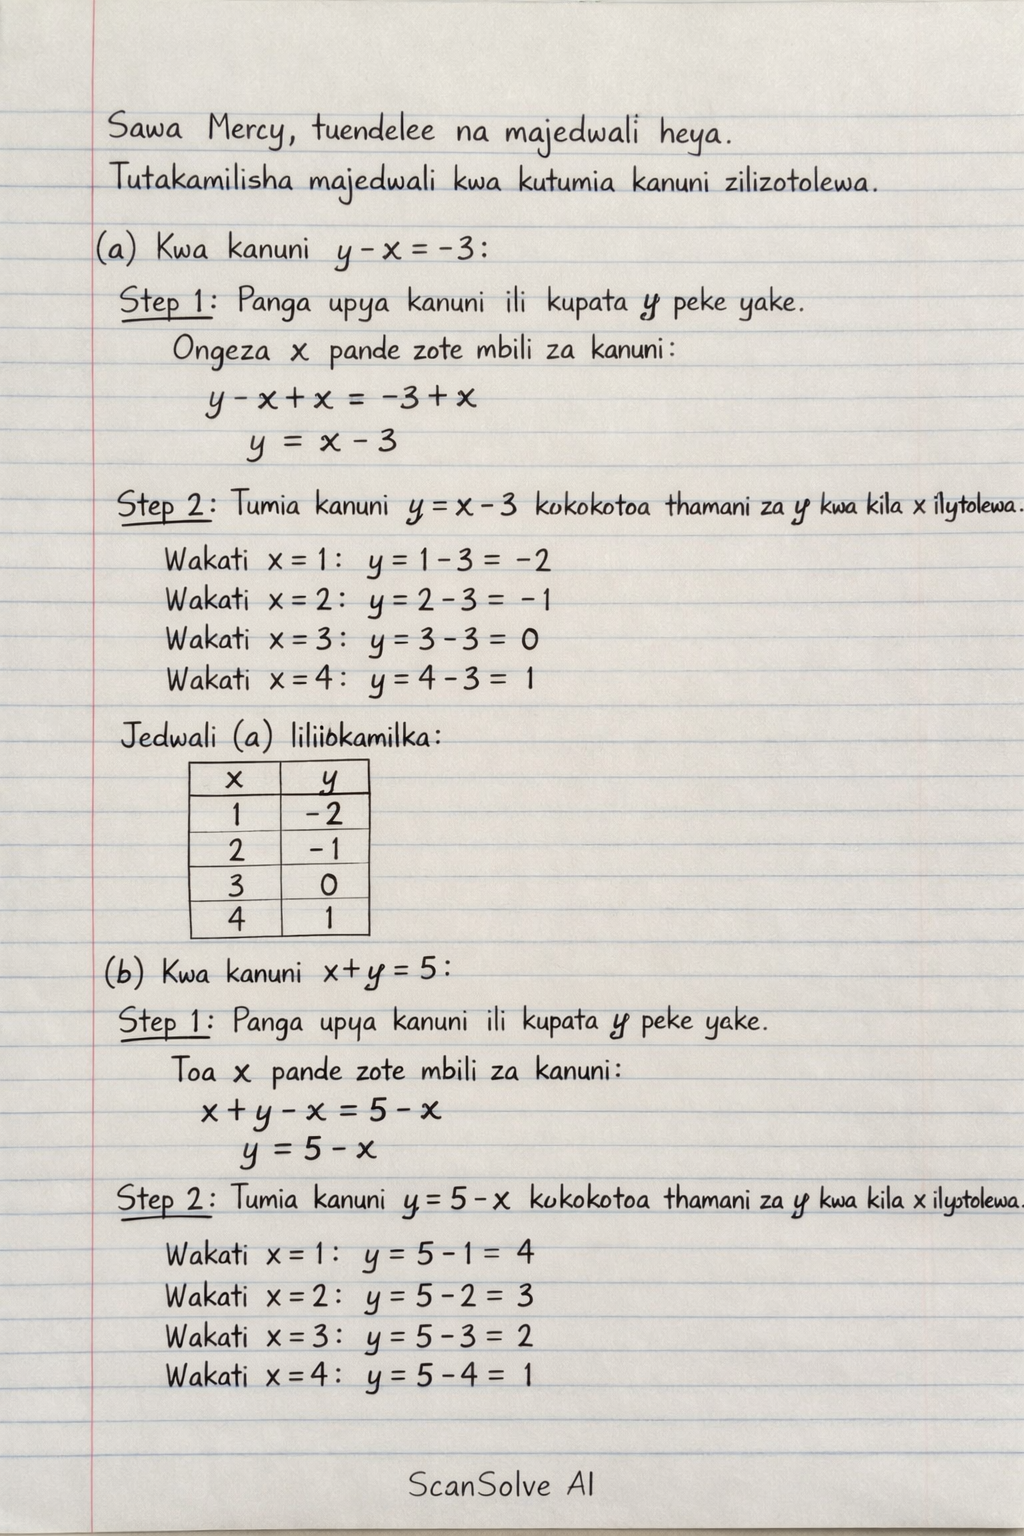 Sawa Mercy, tuendelee na majedwali heya.
Tutakamilisha majedwali kwa kutumia kanuni zilizotolewa.
(a) Kwa kanuni y - x = -3:
Step 1: Panga upya kanuni ili kupata y peke yake.
Ongeza x pande zote mbili za kanuni:
y - x + x = -3 + x
y = x - 3
Step 2: Tumia kanuni y = x - 3 kukokotoa thamani za y kwa kila x ilytolewa.
Wakati x = 1: y = 1 - 3 = -2
Wakati x = 2: y = 2 - 3 = -1
Wakati x = 3: y = 3 - 3 = 0
Wakati x = 4: y = 4 - 3 = 1
Jedwali (a)
x y
1 -2
2 -1
3 0
4 1
(b) Kwa kanuni x + y = 5:
Step 1: Panga upya kanuni ili kupata y peke yake.
Toa x pande zote mbili za kanuni:
x + y - x = 5 - x
y = 5 - x
Step 2: Tumia kanuni y = 5 - x kukokotoa thamani za y kwa kila x
Wakati x = 1: y = 5 - 1 = 4
Wakati x = 2: y = 5 - 2 = 3
Wakati x = 3: y = 5 - 3 = 2
Wakati x = 4: y = 5 - 4 = 1
ScanSolve AI